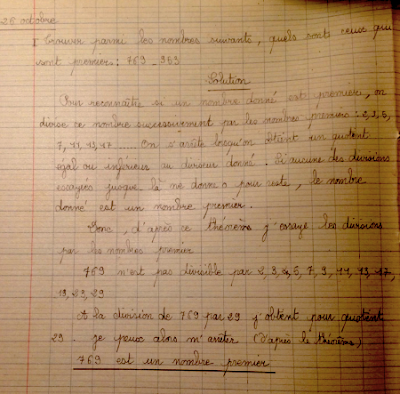 26 octobre
I Trouver parmi les nombres suivants, quels sont ceux qui
sont premiers : 769 _ 969
Solution
Pour reconnaître si un nombre donné est premier, on
divise ce nombre successivement par les nombres premiers : 2, 3, 5,
7, 11, 13, 17 ...... On s'arrête lorsqu'on obtient un quotient
égal ou inférieur au diviseur donné : si aucune des divisions
essayées jusque là ne donne 0 pour reste, le nombre
donné est un nombre premier.
Donc, d'après ce théorème j'essaye les divisions
par les nombres premier
769 n'est pas divisible par 2, 3, 5, 7, 9, 11, 13, 17,
19, 23, 29
A la division de 769 par 29 j'obtent pour quotient
29. je peux alors m'arrêter (d'après le théorème)
769 est un nombre premier